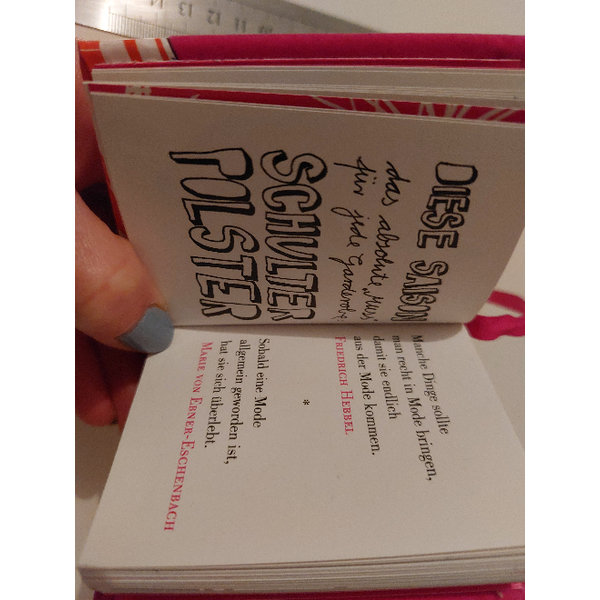 DIESE SAISON
das absolute „Muss"
für jede Garderobe:
SCHULTER
POLSTER
Manche Dinge sollte
man recht in Mode bringen,
damit sie endlich
aus der Mode kommen.
FRIEDRICH HEBBEL
*
Sobald eine Mode
allgemein geworden ist,
hat sie sich überlebt.
MARIE VON EBNER-ESCHENBACH
11
12
13
14